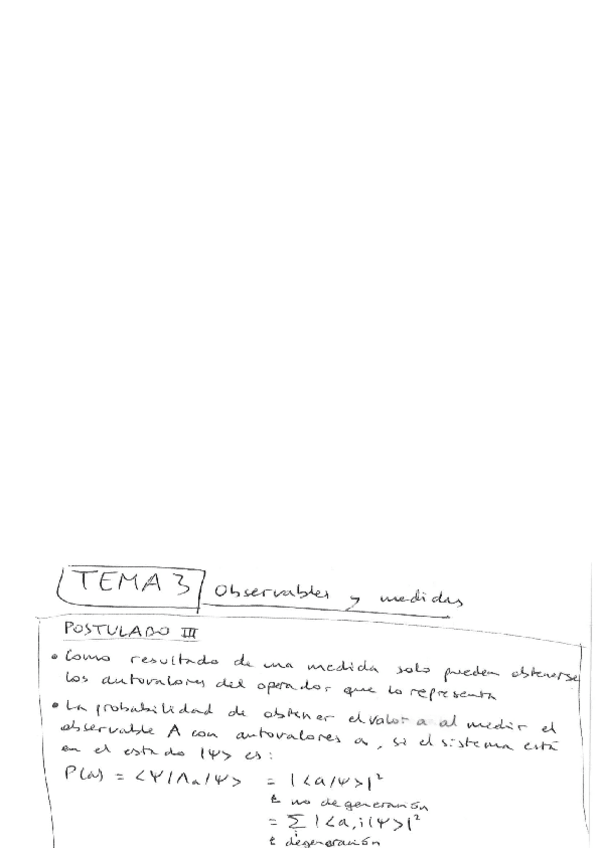 TEMA 3 Observables y medidas
POSTULADO III
• Como resultado de una medida solo pueden obtenerse
los autovalores del operador que lo representa
• La probabilidad de obtener el valor a al medir el
observable A con autovalores a, si el sistema está
en el estado |Ψ> es:
P(a) = <Ψ|Λa|Ψ> = |<a|Ψ>|²
↑ no degeneración
= Σ |<a,i|Ψ>|²
i
↑ degeneración